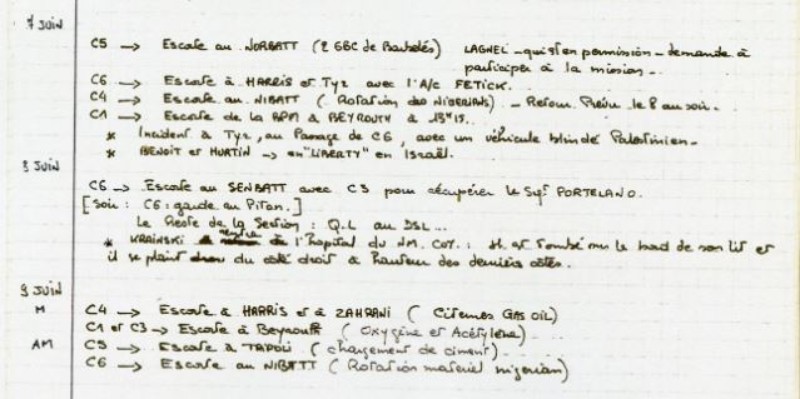 7 JUIN
C5 → Escorte au NORBATT (2 GBC de Barbelés) LAGNEL - qui est en permission - demande à
participer à la mission -
C6 → Escorte à HARRIS et Tyr avec l'A/c FETICK.
C4 → Escorte au NIBATT ( Rotation des NIGERIANS) - Retour Prévu le 8 au soir.
C1 → Escorte de la à BEYROUTH à 13H15.
* Incident à Tyr, au Passage de C6, avec un véhicule blindé Palestinien -
* BENOIT et HURTIN → en "LIBERTY" en Israël.
8 JUIN
C6 → Escorte au SENBATT avec C3 pour récupérer le Sgt PORTELANO.
[ Soir : C6 : garde au Piton. ]
Le Reste de la Section : Q.L au DSL ...
* KRAINSKI de l'hopital du : Il est tombé sur le bord de son lit et
il se plaint du côté droit à hauteur des derniers côtes.
9 JUIN
M C4 → Escorte à HARRIS et à ZAHRANI ( Citernes GAS OIL)
C1 et C3 → Escorte à Beyrouth ( Oxygène et Acétylène)
AM C5 → Escorte à TRIPOLI ( chargement de ciment)
C6 → Escorte au NIBATT ( Rotation materiel nigerian)